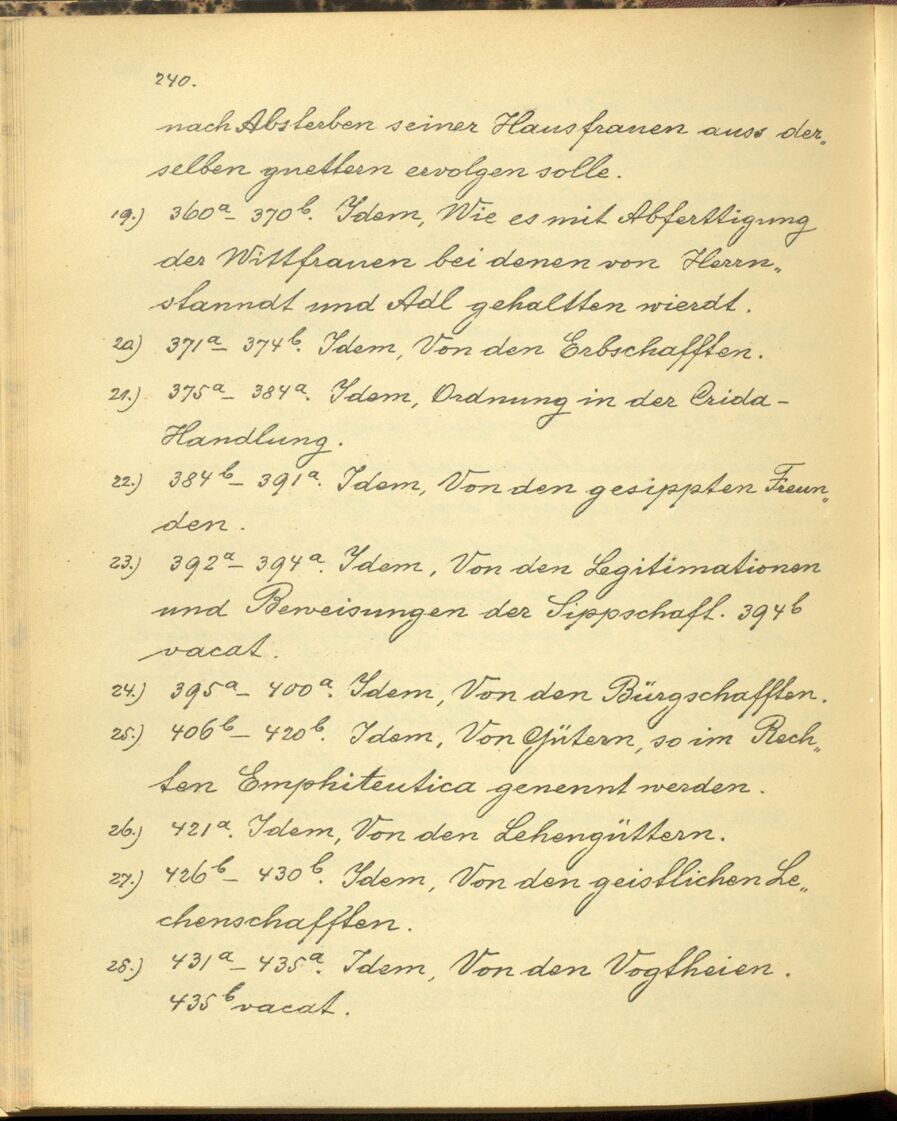 240.
nach Absterben seiner Hausfrauen auss der„
selben guettern ervolgen solle.
19.) 360a – 370b. Idem, Wie es mit Abferttigung
der Wittfrauen bei denen von Herrn„
stanndt und Adl gehaltten wierdt.
20) 371a – 374b. Idem, Von den Erbschafften.
21.) 375a – 384a. Idem, Ordnung in der Crida-
Handlung.
22.) 384b – 391a. Idem, Von den gesippten Freun„
den.
23.) 392a – 394a. Idem, Von den Legitimationen
und Beweisungen der Sippschaft. 394b
vacat.
24.) 395a – 400a. Idem, Von den Bürgschafften.
25.) 406b – 420b. Idem, Von Gütern, so im Rech„
ten Emphiteutica genennt werden.
26.) 421a. Idem, Von den Lehengüttern.
27.) 426b – 430b. Idem, Von den geistlichen Le„
chenschafften.
28.) 431a – 435a. Idem, Von den Vogtheien.
435b vacat.